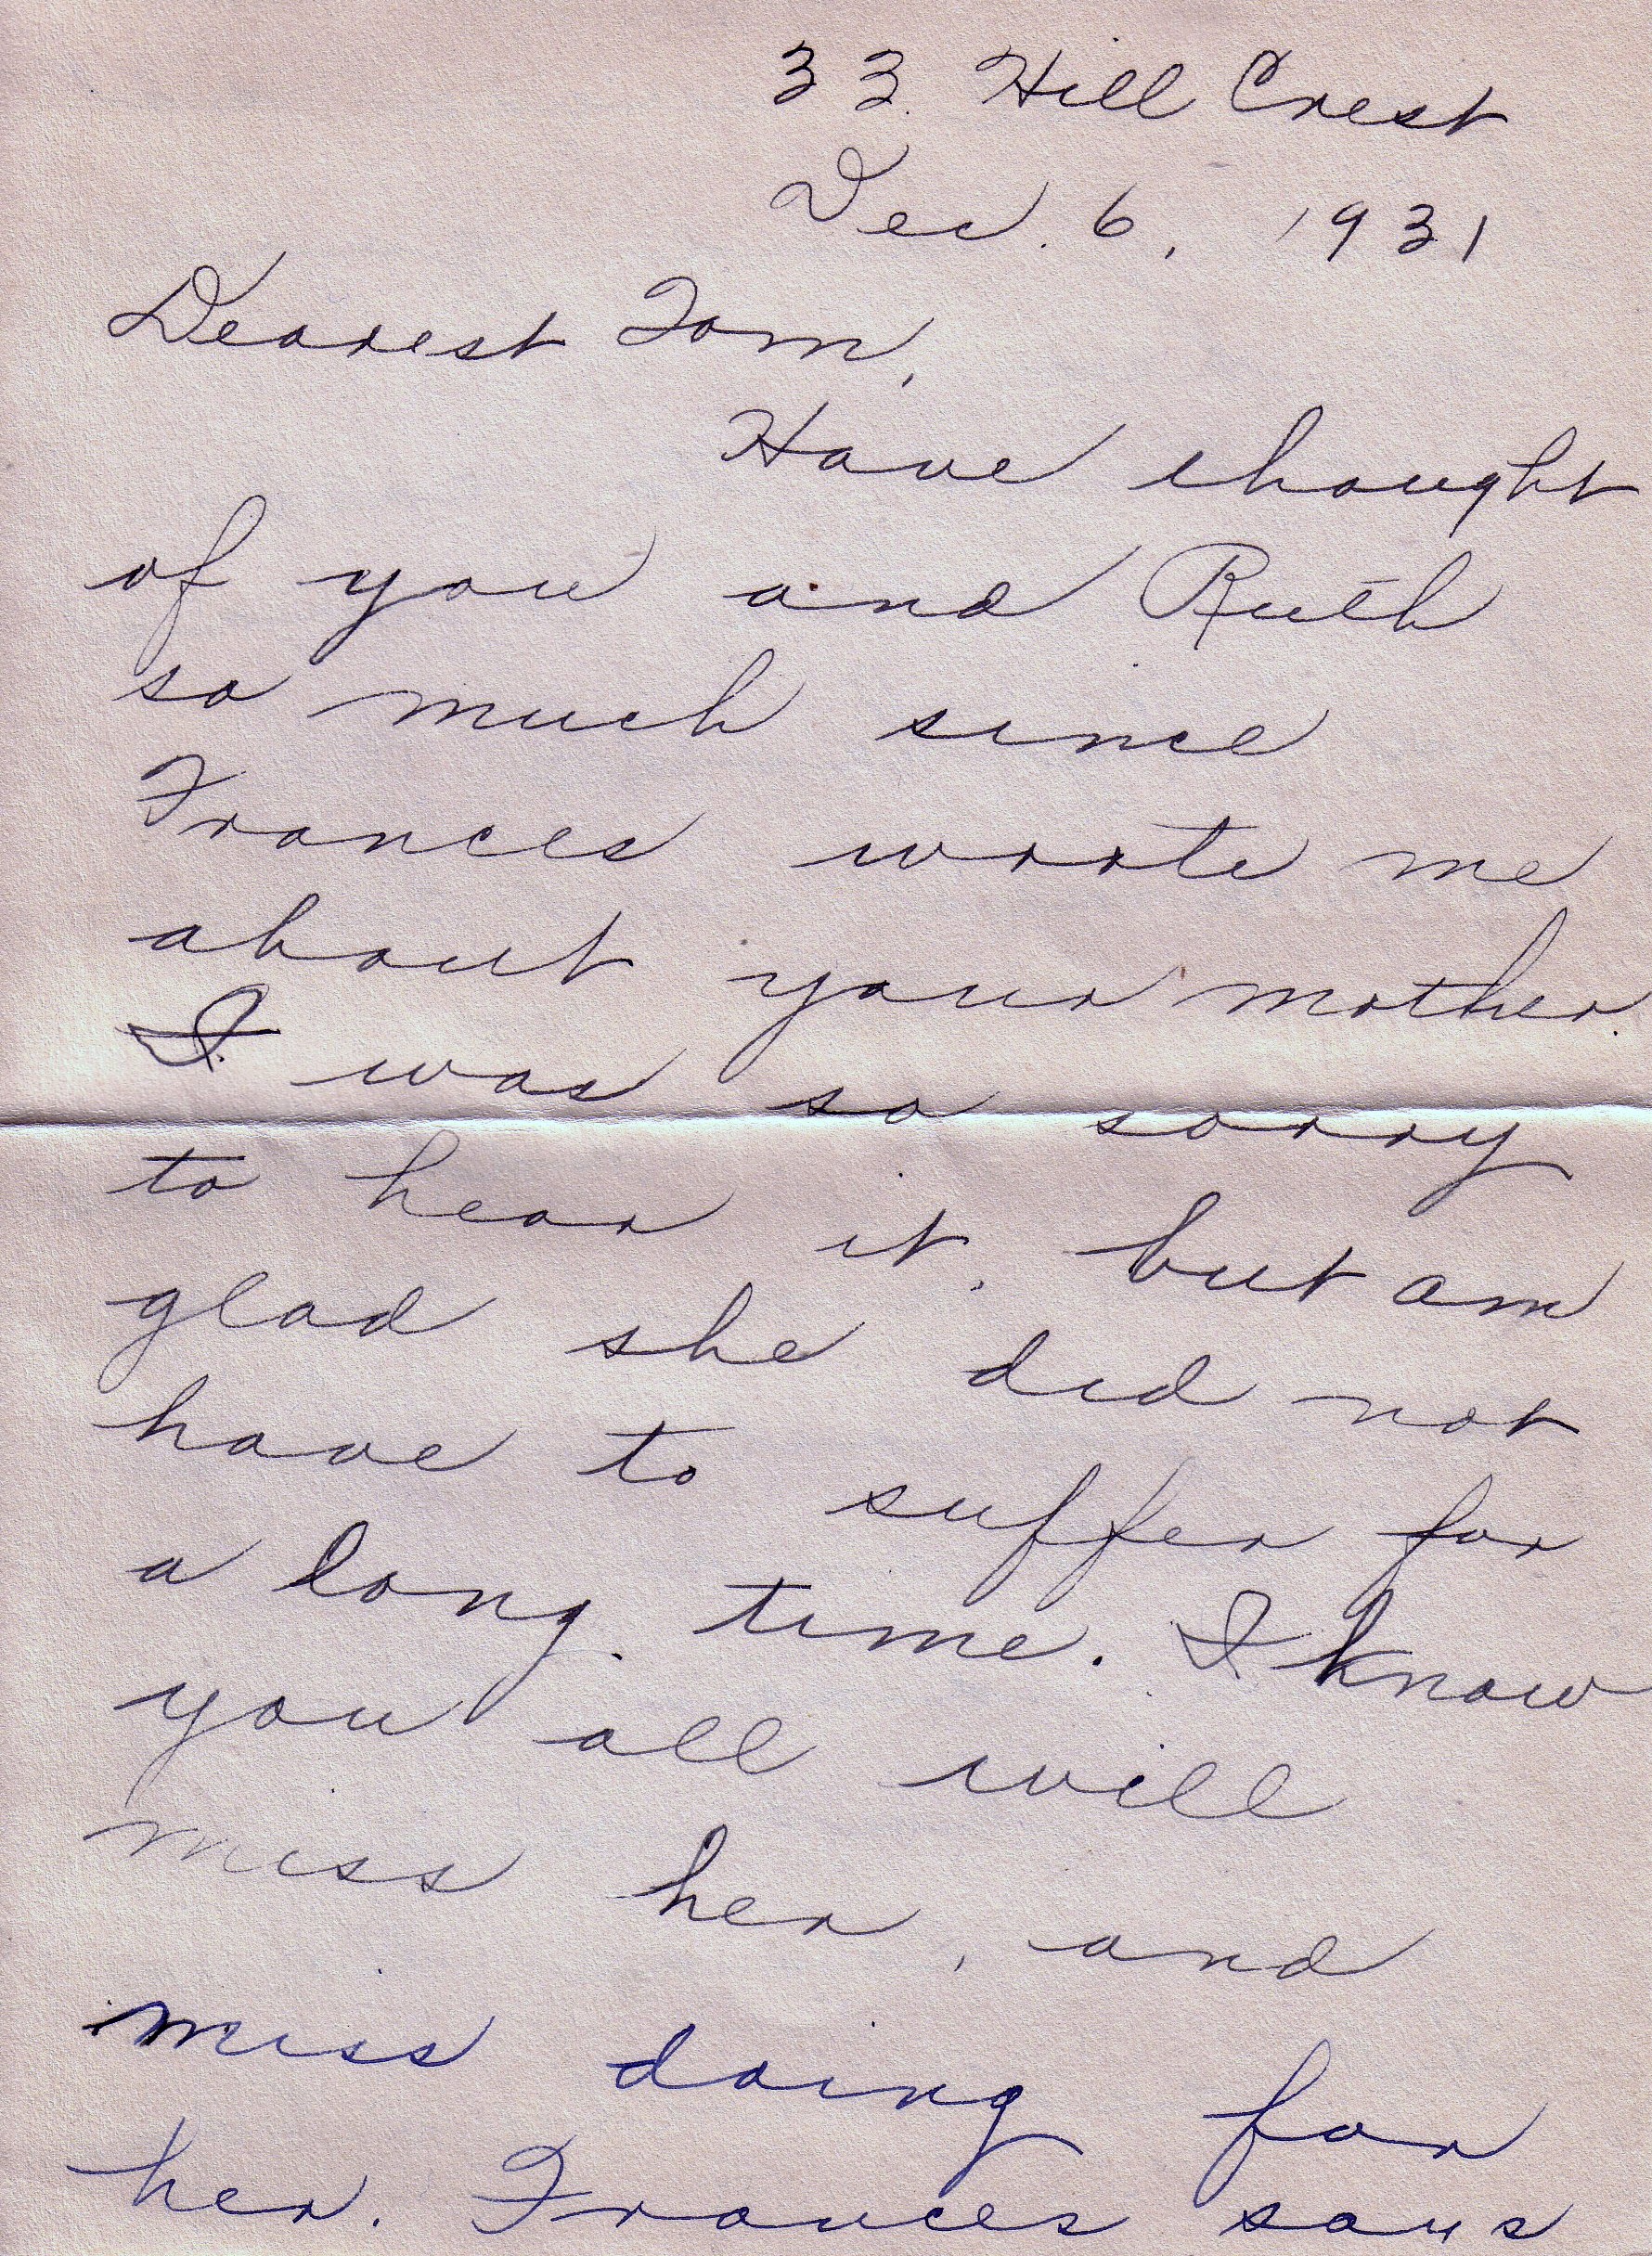 33 Hill Crest
Dec. 6, 1931
Dearest Tom,
Have thought
of you and Ruth
so much since
Frances wrote me
about your mother.
I was so sorry
to hear it, but am
glad she did not
have to suffer for
a long time. I know
you all will
miss her, and
miss doing for
her. Frances says